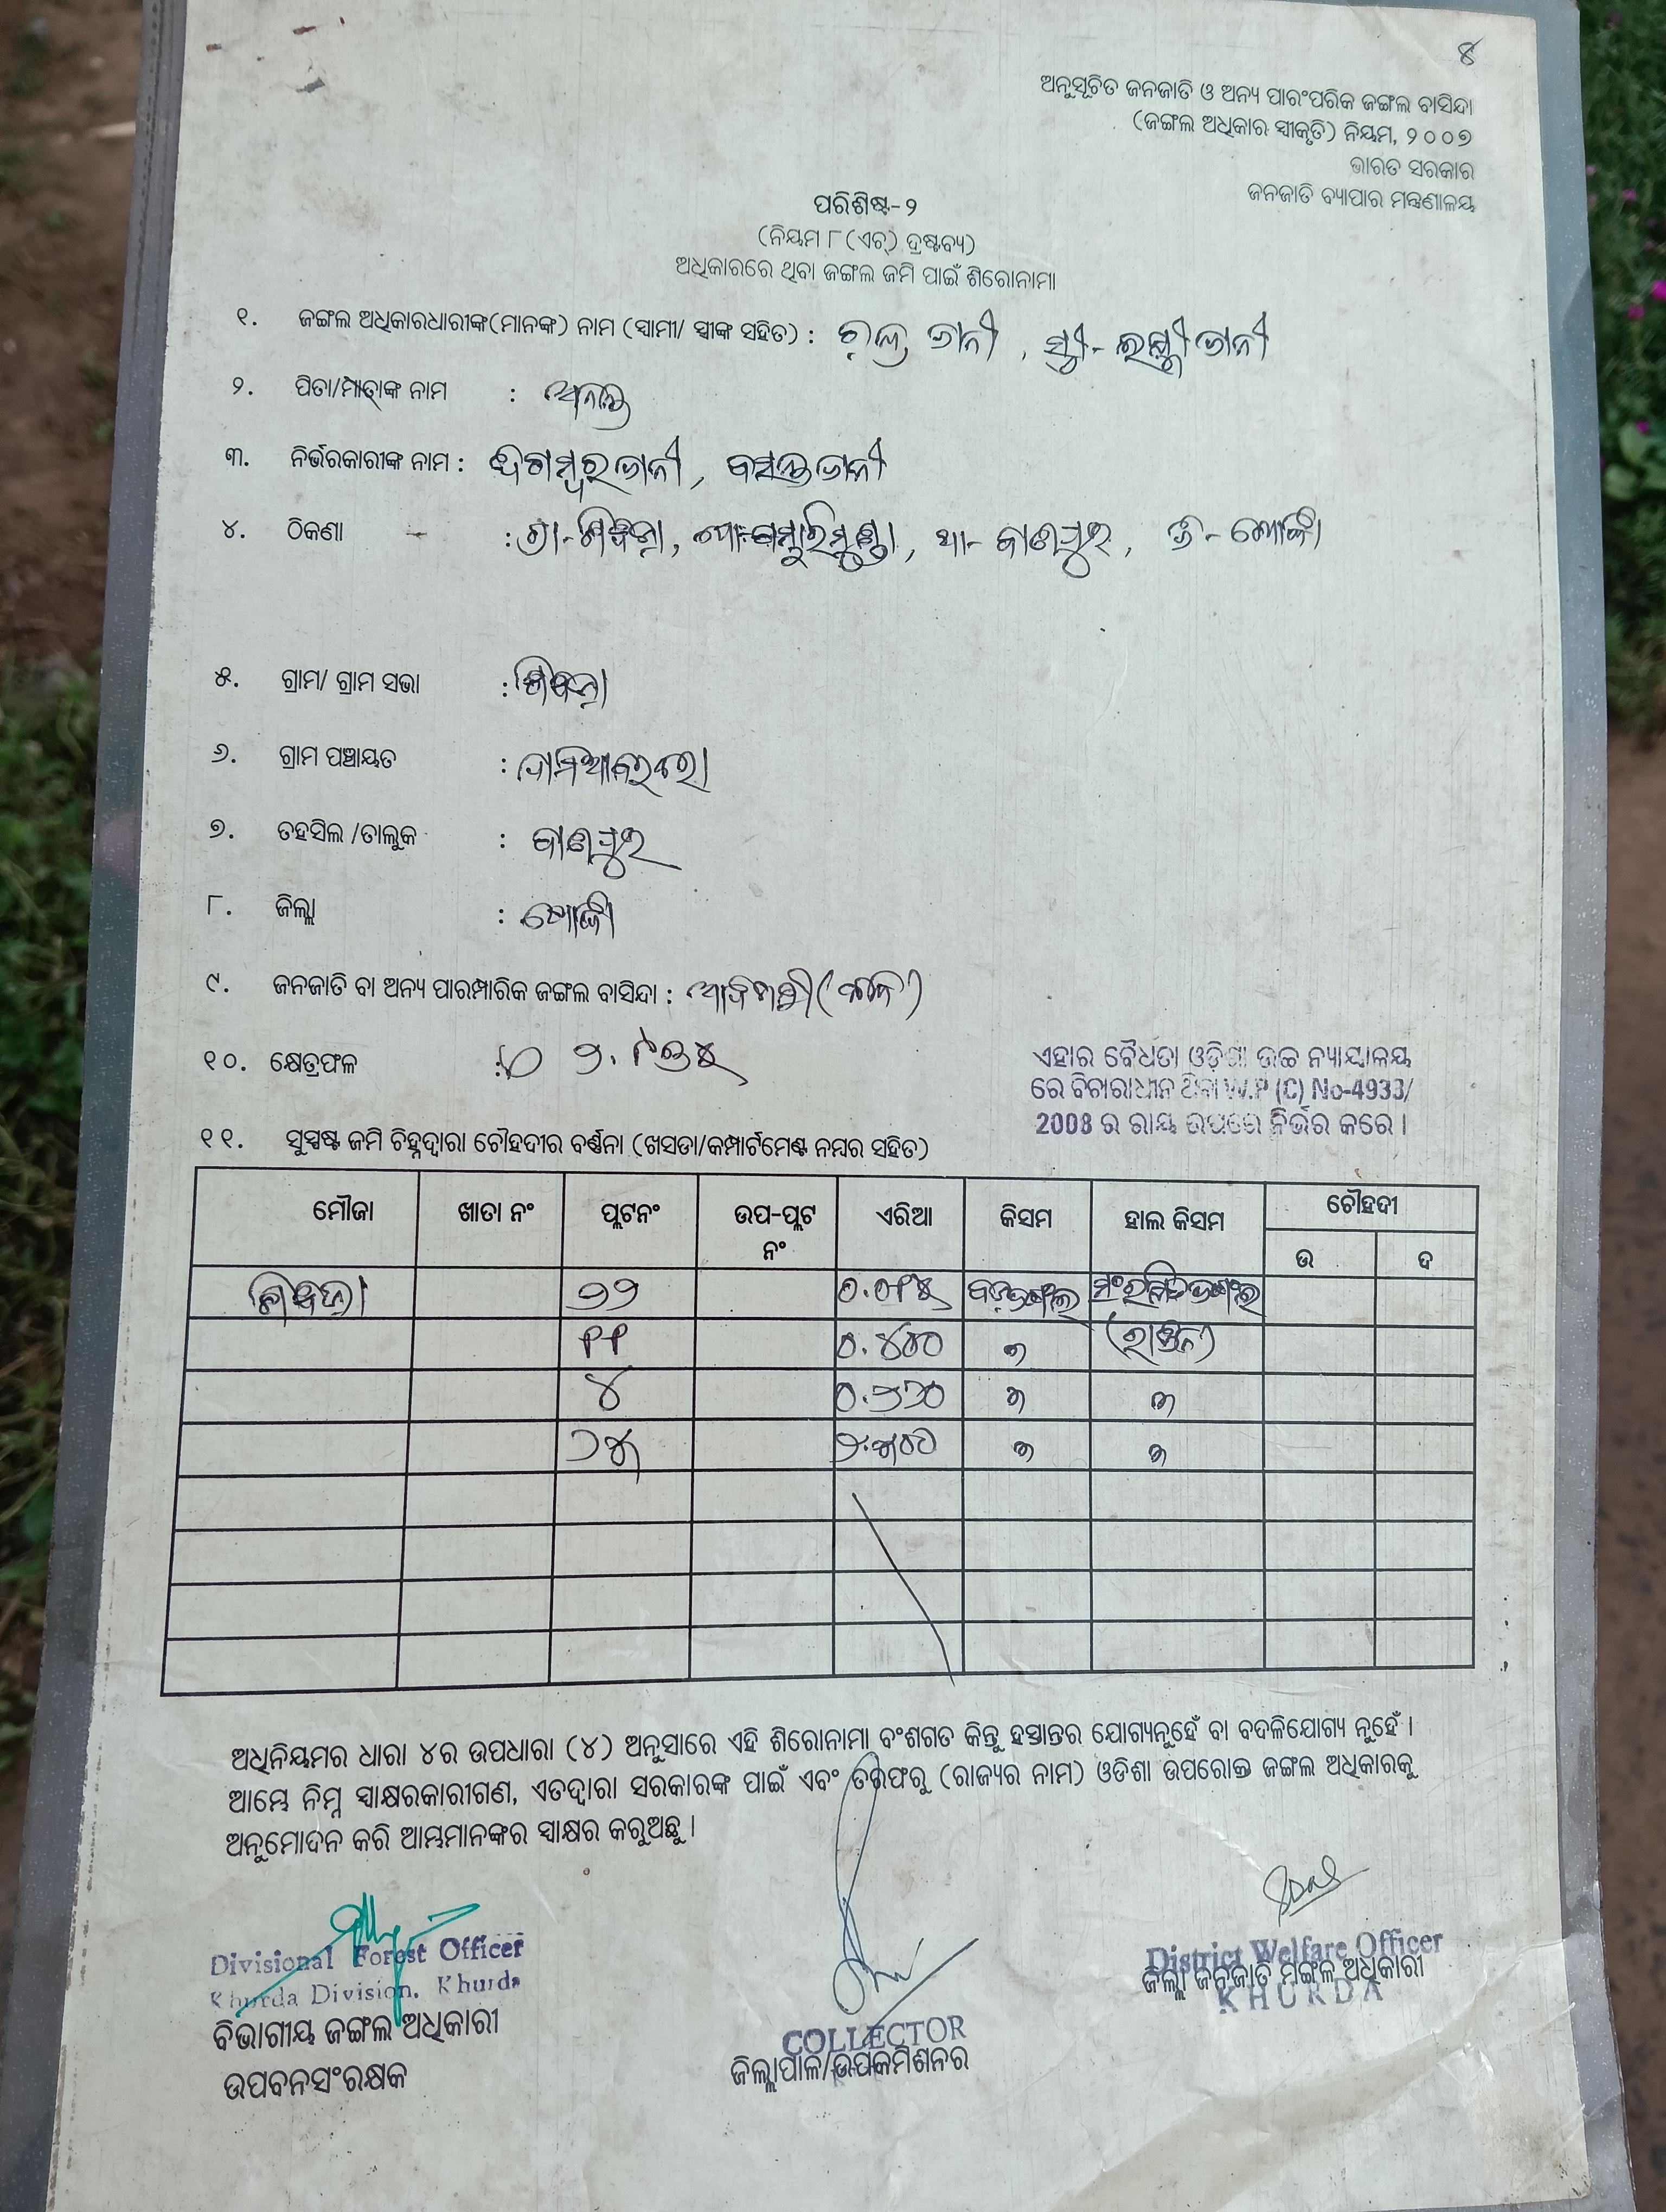 ୪
ଅନୁସୂଚିତ ଜନଜାତି ଓ ଅନ୍ୟ ପାରଂପରିକ ଜଙ୍ଗଲ ବାସିନ୍ଦା
(ଜଙ୍ଗଲ ଅଧିକାର ସ୍ୱୀକୃତି) ନିୟମ, ୨୦୦୭
ଭାରତ ସରକାର
ଜନଜାତି ବ୍ୟାପାର ମନ୍ତ୍ରଣାଳୟ
ପରିଶିଷ୍ଟ-୨
(ନିୟମ ୮ (ଏଚ୍) ଦ୍ରଷ୍ଟବ୍ୟ)
ଅଧିକାରରେ ଥିବା ଜଙ୍ଗଲ ଜମି ପାଇଁ ଶିରୋନାମା
୧. ଜଙ୍ଗଲ ଅଧିକାରଧାରୀଙ୍କ(ମାନଙ୍କ) ନାମ (ସ୍ୱାମୀ/ ସ୍ତ୍ରୀଙ୍କ ସହିତ) : ଜାନୀ , ସ୍ତ୍ରୀ- ଲକ୍ଷ୍ମୀ ଜାନୀ
୨. ପିତା/ମାତାଙ୍କ ନାମ : ଅନନ୍ତ
୩. ନିର୍ଭରକାରୀଙ୍କ ନାମ : ଦିଗମ୍ବର ଜାନୀ, ବସନ୍ତ ଜାନୀ
୪. ଠିକଣା : ଗ୍ରା- , ପୋ- , ଥା- ବାଣପୁର, ଜି- ଖୋର୍ଦ୍ଧା
୫. ଗ୍ରାମ/ ଗ୍ରାମ ସଭା :
୬. ଗ୍ରାମ ପଞ୍ଚାୟତ :
୭. ତହସିଲ /ତାଲୁକ : ବାଣପୁର
୮. ଜିଲ୍ଲା : ଖୋର୍ଦ୍ଧା
୯. ଜନଜାତି ବା ଅନ୍ୟ ପାରମ୍ପାରିକ ଜଙ୍ଗଲ ବାସିନ୍ଦା : ଆଦିବାସୀ
୧୦. କ୍ଷେତ୍ରଫଳ :
ଏହାର ବୈଧତା ଓଡ଼ିଶା ଉଚ୍ଚ ନ୍ୟାୟାଳୟ
ରେ ବିଚାରାଧୀନ ଥିବା W.P (C) No-4933/
2008 ର ରାୟ ଉପରେ ନିର୍ଭର କରେ ।
୧୧. ସୁସ୍ପଷ୍ଟ ଜମି ଚିହ୍ନଦ୍ୱାରା ଚୌହଦୀର ବର୍ଣ୍ଣନା (ଖସଡା/କମ୍ପାର୍ଟମେଣ୍ଟ ନମ୍ବର ସହିତ)
ମୌଜା ଖାତା ନଂ ପ୍ଲଟନଂ ଉପ-ପ୍ଲଟ ନଂ ଏରିଆ କିସମ ହାଲ କିସମ ଚୌହଦୀ
ଉ ଦ
୨୨ ସଂରକ୍ଷିତ ଜଙ୍ଗଲ
୧୧ ୦.୪୦୦
୪
ଅଧିନିୟମର ଧାରା ୪ର ଉପଧାରା (୪) ଅନୁସାରେ ଏହି ଶିରୋନାମା ବଂଶଗତ କିନ୍ତୁ ହସ୍ତାନ୍ତର ଯୋଗ୍ୟନୁହେଁ ବା ବଦଳିଯୋଗ୍ୟ ନୁହେଁ ।
ଆମ୍ଭେ ନିମ୍ନ ସ୍ୱାକ୍ଷରକାରୀଗଣ, ଏତଦ୍ୱାରା ସରକାରଙ୍କ ପାଇଁ ଏବଂ ତରଫରୁ (ରାଜ୍ୟର ନାମ) ଓଡିଶା ଉପରୋକ୍ତ ଜଙ୍ଗଲ ଅଧିକାରକୁ
ଅନୁମୋଦନ କରି ଆମ୍ଭମାନଙ୍କର ସ୍ୱାକ୍ଷର କରୁଅଛୁ ।
Divisional Forest Officer
Khurda Division, Khurda
ବିଭାଗୀୟ ଜଙ୍ଗଲ ଅଧିକାରୀ
ଉପବନସଂରକ୍ଷକ
COLLECTOR
ଜିଲ୍ଲାପାଳ/ଉପକମିଶନର
District Welfare Officer
ଜିଲ୍ଲା ଜନଜାତି ମଙ୍ଗଳ ଅଧିକାରୀ
KHURDA